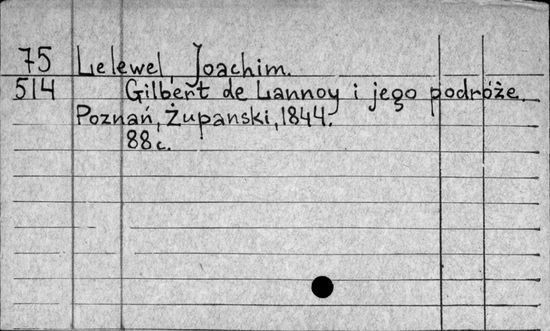 75 Lelewel, Joachim.
514 Gilbert de Lannoy i jego podróże.
Poznań, Żupanski, 1844.
88 c.